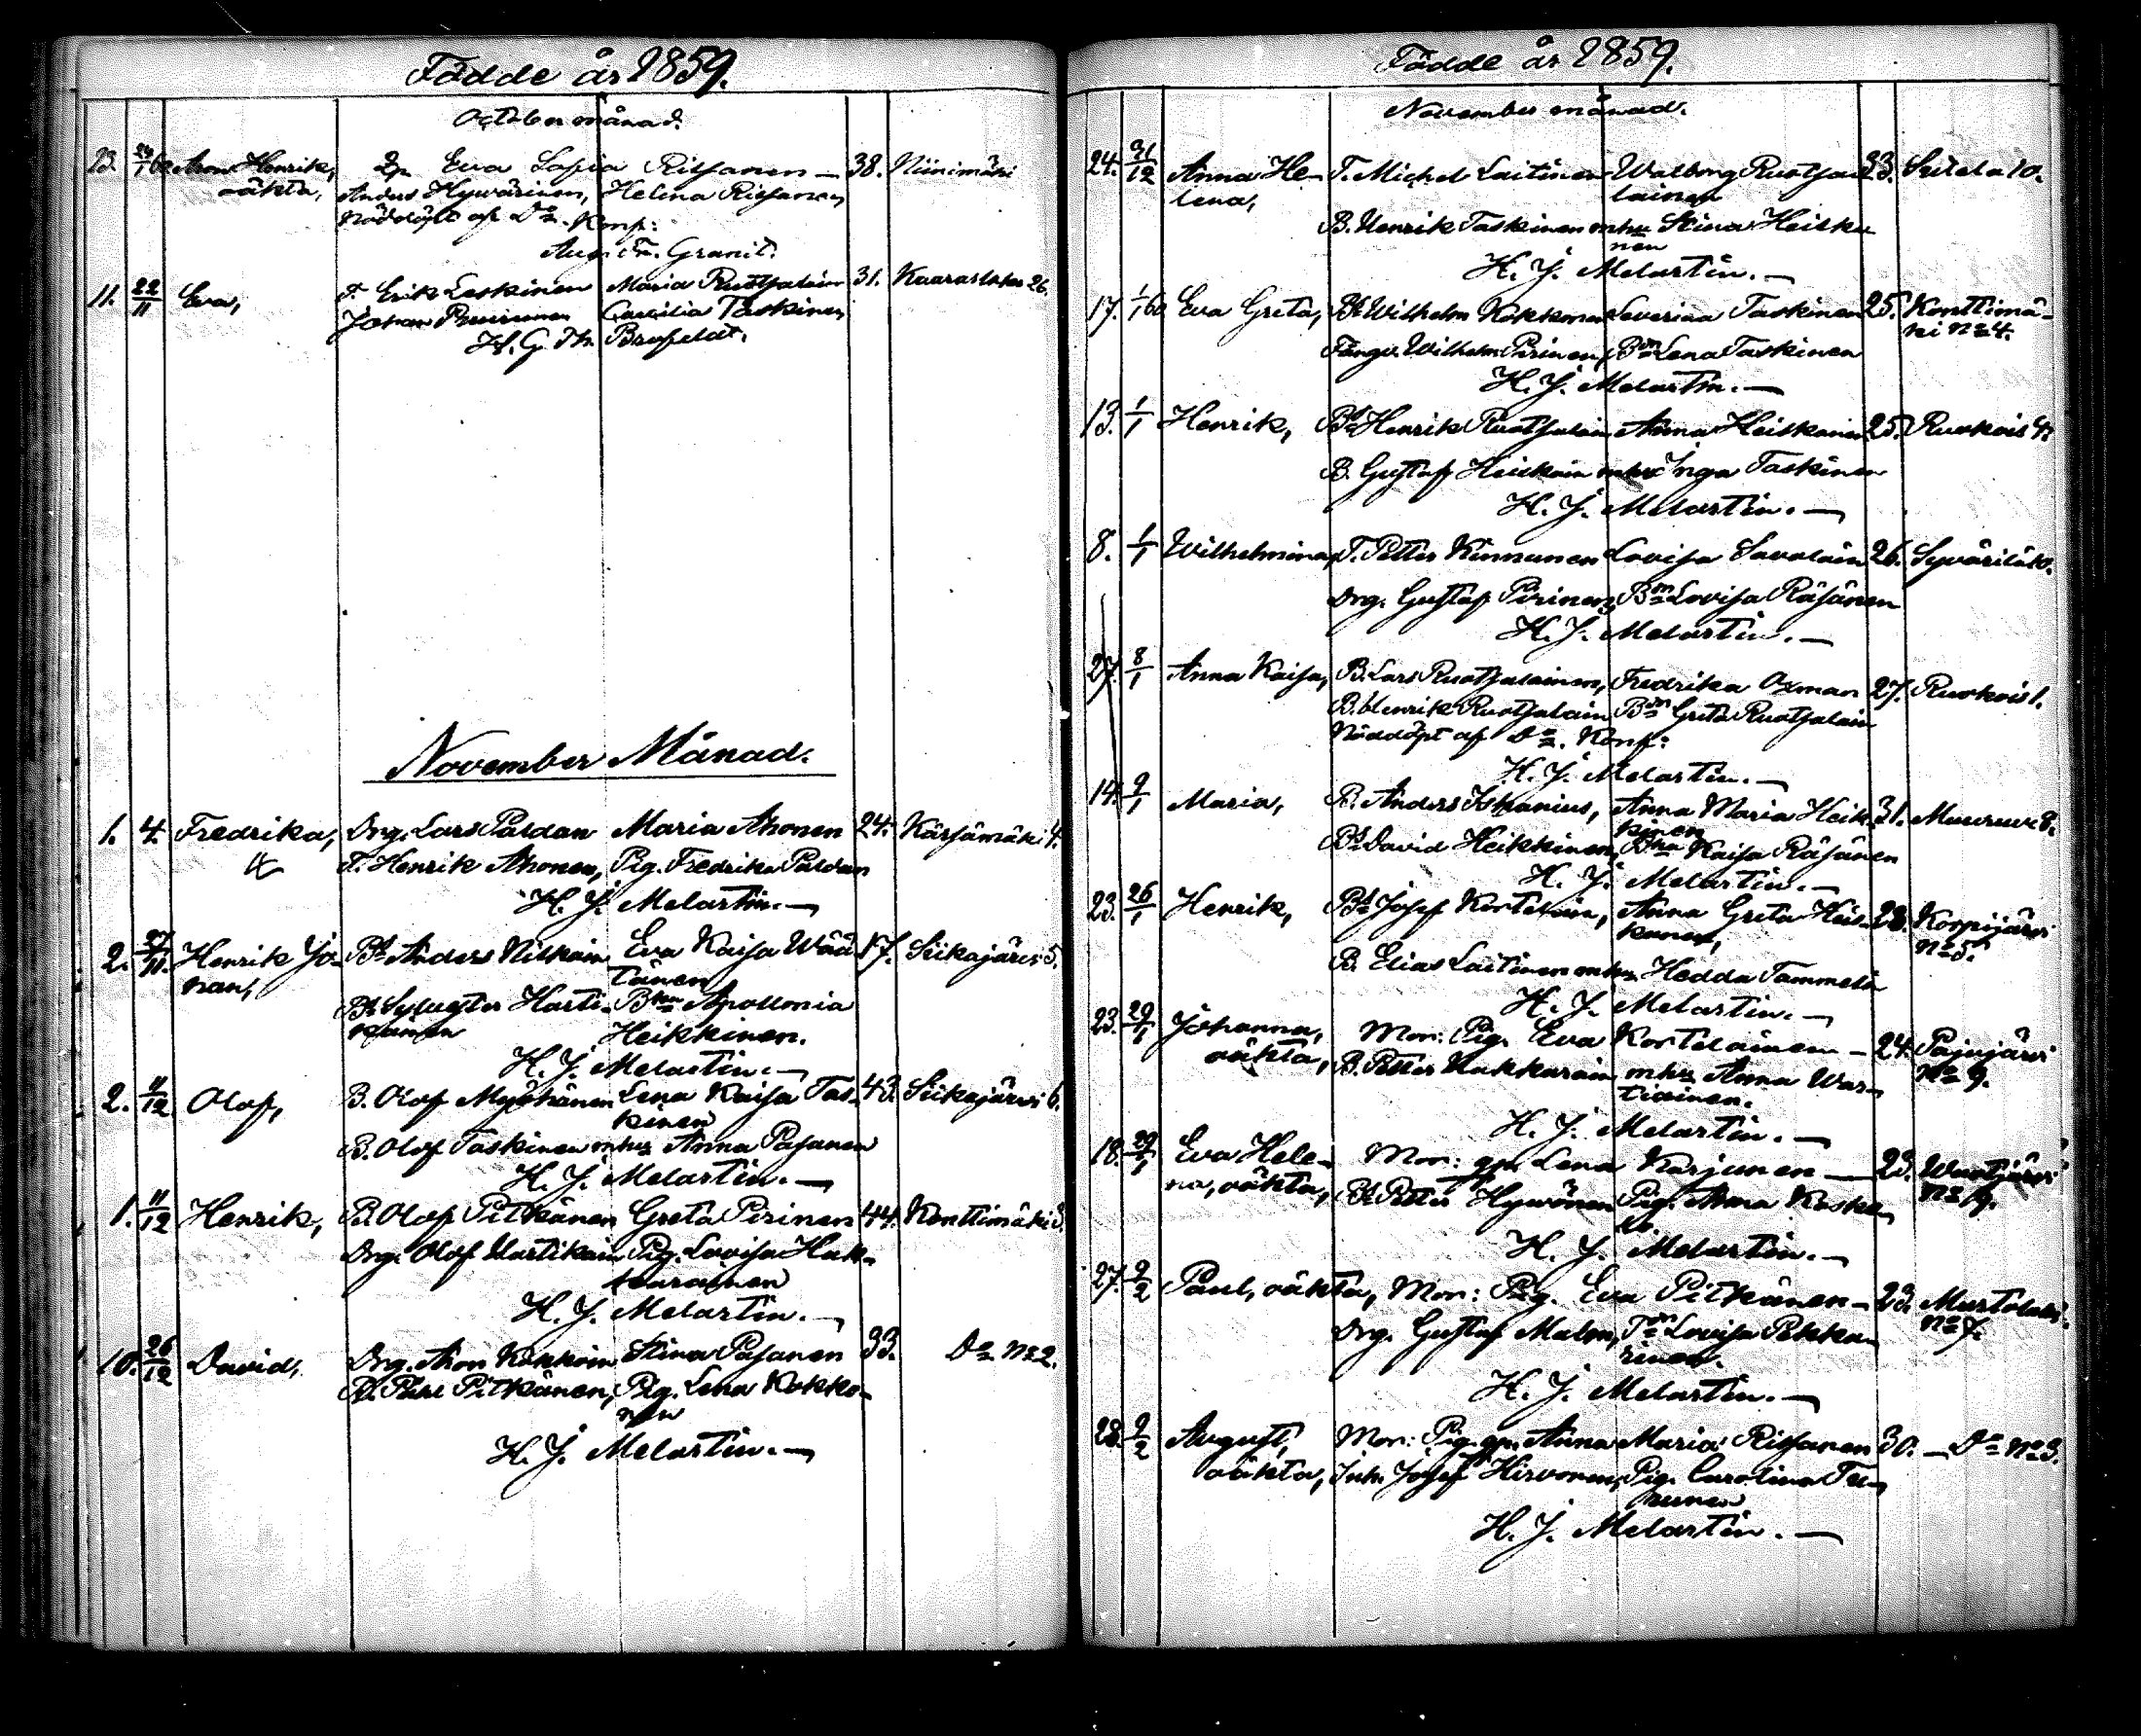 Födde år 1859.
October månad.
23. 29/1 60 Aron Henrik, Qp. Eva Sofia Rissanen — 38. Niinimäki
oäkta, Anders Hyvärinen, Helena Rissanen
Nöddöpt af Do. Konf:
Aug. Fr. Granit.
11. 22/11 Eva, T. Erik Leskinen Maria Ruotsalain 31. Kaaraslahti 26.
Johan Pruunen Caecilia Taskinen
H. G. Th. Brofeldt.
November Månad.
1. 4. Fredrika, Drg. Lars Paldan Maria Ahonen 24. Kärsämäki 4.
T. Henrik Ahonen, Pig. Fredrika Paldan
H. J. Melartin. —
2. 27/11. Henrik Jo- Bd Anders Niskain Eva Kaisa Wää- 17. Siikajärvi 5.
han, tänen
Bd Sylvester Harti- Bhu Apollonia
kainen Heikkinen.
H. J. Melartin. —
2. 11/12 Olof, B. Olof Myöhänen Lena Kaisa Tas- 43. Siikajärvi 6.
kinen
B. Olof Taskinen mhu Anna Pasanen
H. J. Melartin. —
1. 11/12 Henrik, B. Olof Pitkänen Greta Pirinen 44. Konttimäki 3.
Drg. Olof Hartikain Pig. Lovisa Hak-
karainen
H. J. Melartin. —
10. 26/12 David, Drg. Aron Kokkoin Stina Pasanen 33. Do No 2.
B. Påhl Pitkänen, Pig. Lena Kokko-
nen
H. J. Melartin. —
Födde år 1859.
November månad.
24. 31/12 Anna He- T. Michel Laitinen Walborg Ruotsa- 33. Sutela 10.
lena, lainen
B. Henrik Taskinen mhu Stina Heisku
nen
H. J. Melartin. —
17. 1/1 60 Eva Greta, Bd Wilhelm Kokkonen Severina Taskinen 25. Konttimä-
ki No 4.
Fångv. Wilhelm Pirinen, Bm Lena Taskinen
H. J. Melartin. —
13. 1/1 Henrik, Bd Henrik Ruotsalain Anna Heiskanen 25. Ruokois 4.
B. Gustaf Heiskain mhu Inga Taskinen
H. J. Melartin. —
8. 1/1 Wilhelmina, T. Petter Kinnunen Lovisa Savolain 26. Syvärilä 10.
Drg. Gustaf Pirinen, Bm Lovisa Räsänen
H. J. Melartin. —
27. 8/1 Anna Kaisa, B. Lars Ruotsalainen, Fredrika Oxman 27. Ruokois 1.
B. Henrik Ruotsalain Bm Greta Ruotsalain
Nöddöpt af Do. Konf:
H. J. Melartin. —
14. 9/1 Maria, B. Anders Ishanius, Anna Maria Heik- 31. Muuruve 8.
kinen
Bd David Heikkinen, Bhu Kaisa Räsänen
H. J. Melartin. —
23. 26/1 Henrik, Bd Josef Kortelain, Anna Greta Heis- 28. Korpijärvi
kanen, No 5.
B. Elias Laitinen mhu Hedda Tammelin
H. J. Melartin. —
23. 29/1 Johanna, Mor: Pig. Eva Kortelainen — 24. Pajujärvi
oäkta, B. Petter Hakkarain mhu Anna War- No 9.
tiainen.
H. J. Melartin. —
18. 29/1 Eva Hele- Mor: qp. Lena Karjunen — 23. Wuotjärvi
na, oäkta, Bd Petter Hyvönen Pig. Anna Koske- No 19.
lo.
H. J. Melartin. —
27. 2/2 Paul, oäkta, Mor: Pig. Eva Pitkänen — 23. Murtolaks.
No 7.
Drg. Gustaf Malm, Tm Lovisa Pekka-
rinen.
H. J. Melartin. —
28. 2/2 August, Mor: Pig. qp. Anna Maria Rissanen 30. — Do No 3.
oäkta, Inh. Josef Hirvonen, Pig. Carolina Tu-
runen
H. J. Melartin. —